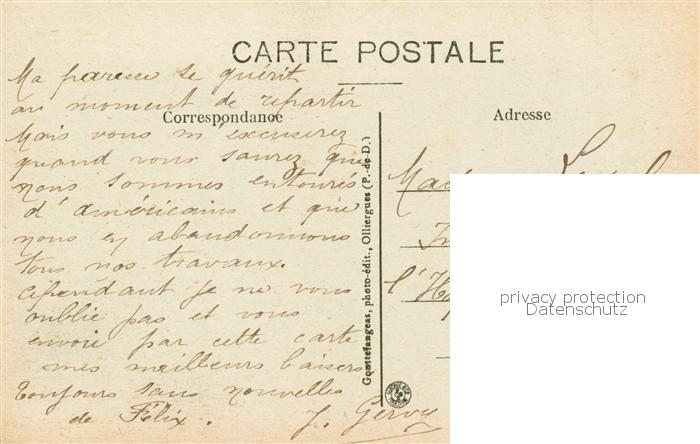 CARTE POSTALE
Correspondance
Ma paresse se guérit
au moment de repartir
Mais vous m'excuserez
quand vous saurez que
nous sommes entourés
d'américains et que
nous en abandonnons
tous nos travaux.
cependant je ne vous
oublie pas et vous
envoie par cette carte
mes meilleurs baisers
Toujours sans nouvelles
de Félix.
J. Gervy
Gouttefangeas, photo-édit., Olliergues (P.-de-D.)
Adresse
privacy protection
Datenschutz